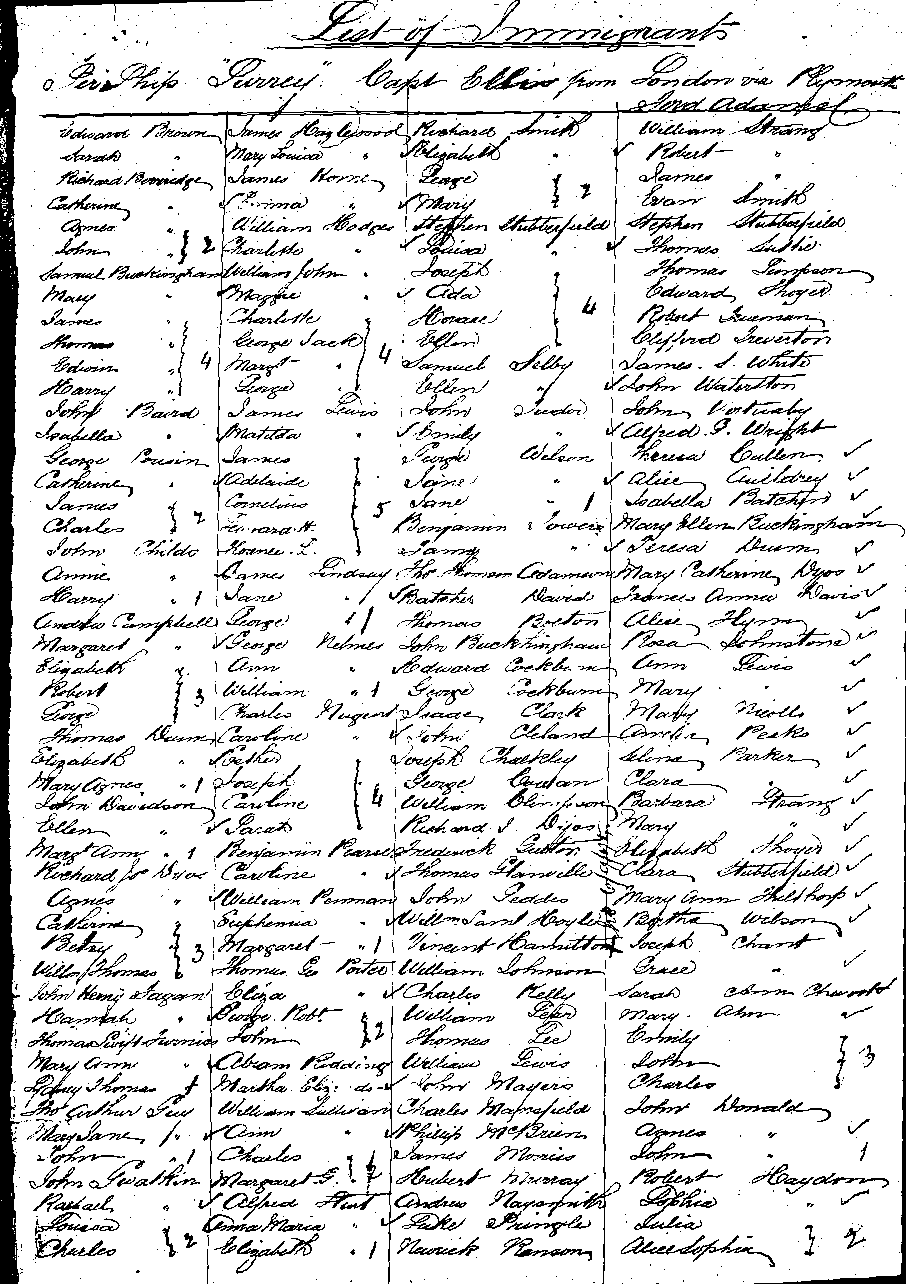 List of Immigrants
Per Ship "Surrey" Capt Ellis from London via Plymouth
Edward Brown
Sarah "
Richard
Catherine "
Agnes "
John " } 2
Samuel Buckingham
Mary "
James "
Thomas "
Edwin " } 4
Harry "
John Baird
Isabella "
George Cousin
Catherine "
James "
Charles " } 2
John Childs
Annie "
Harry " 1
Andrew Campbell
Margaret "
Elizabeth "
Robert } 3
George
Thomas Dunn
Elizabeth "
Mary Agnes " 1
John Davidson
Ellen "
Margt Ann " 1
Richard Jos Dyos
Agnes "
Catherine
Betsy } 3
Willm Thomas
John Henry Fagan
Hannah "
Thomas Swift
Mary Ann "
Sydney Thomas 1
Thos Arthur Guy
Mary Jane "
John " 1
John Gwatkin
Rachael "
Louisa
Charles } 2
James Hazlewood
Mary Louisa "
James Horne
Emma "
William Hodges
Charlotte "
William John "
Maggie "
Charlotte
George Jack } 4
Margt "
George "
James Lewis
Matilda "
James
Adelaide
Cornelius } 5
Howard H.
Horace L.
James Lindsay
Jane "
George " 1
George Nelmes
Ann "
William " 1
Charles Nugent
Caroline "
Esther
Joseph
Caroline } 4
Sarah
Benjamin Pearse
Caroline "
William Penman
Euphemia "
Margaret " 1
Thomas Geo Porter
Eliza "
George Robt.
John } 2
Abram Redding
Martha Eliz. do
William Sullivan
Ann "
Charles
Margaret G. } 2
Alfred
Anna Maria "
Elizabeth " 1
Richard Smith
Elizabeth "
George
Mary } 2
Stephen Stubberfield
Louisa "
Joseph
Ada
Horace } 4
Ellen
Samuel Selby
Ellen "
John Tudor
Emily "
George Welson
Jane "
Jane " 1
Benjamin Towers
Jane "
Thos Thomson Adamson
Batcher David
Thomas Boston
John Buckhingham
Edward Cockburn
George Cockburn
Isaac Clark
John Cleland
Joseph Chalkley
George
William Climpson
Richard J. Dyos
Frederick
Thomas Glanville
John Geddes
Willm Saml Hoyle
Vincent Hamilton
William Johnson
Charles Kelly
William
Thomas Lee
William Lewis
John Mayers
Charles Mansfield
Philip McBrien
James Morriss
Hubert Murray
Andrew Naysmith
Luke Pringle
Newick Ransom
William Strang
Robert "
James "
Evan Smith
Stephen Stubberfield
Thomas
Thomas Timpson
Edward Thoyer
Robert
Clifford Treverton
James S. White
John Waterston
John
Alfred G. Wright
Theresa Cullen
Alice
Isabella Batchen
Mary Ellen Buckingham
Teresa Dunn
Mary Catherine Dyos
Frances Annie Davis
Alice Flynn
Rosa Johnstone
Ann Lewis
Mary "
Mary Nicolls
Amelia Peaks
Selina Parker
Clara "
Barbara Strang
Mary "
Elizabeth Thoyer
Clara Stubberfield
Mary Ann Thilthorp
Bertha Wilson
Joseph Chant
Grace "
Sarah Ann
Mary Ann "
Emily
John } 3
Charles
John Donald
Agnes "
John 1
Robert Haydon
Sophia "
Julia
Alice Sophia } 2